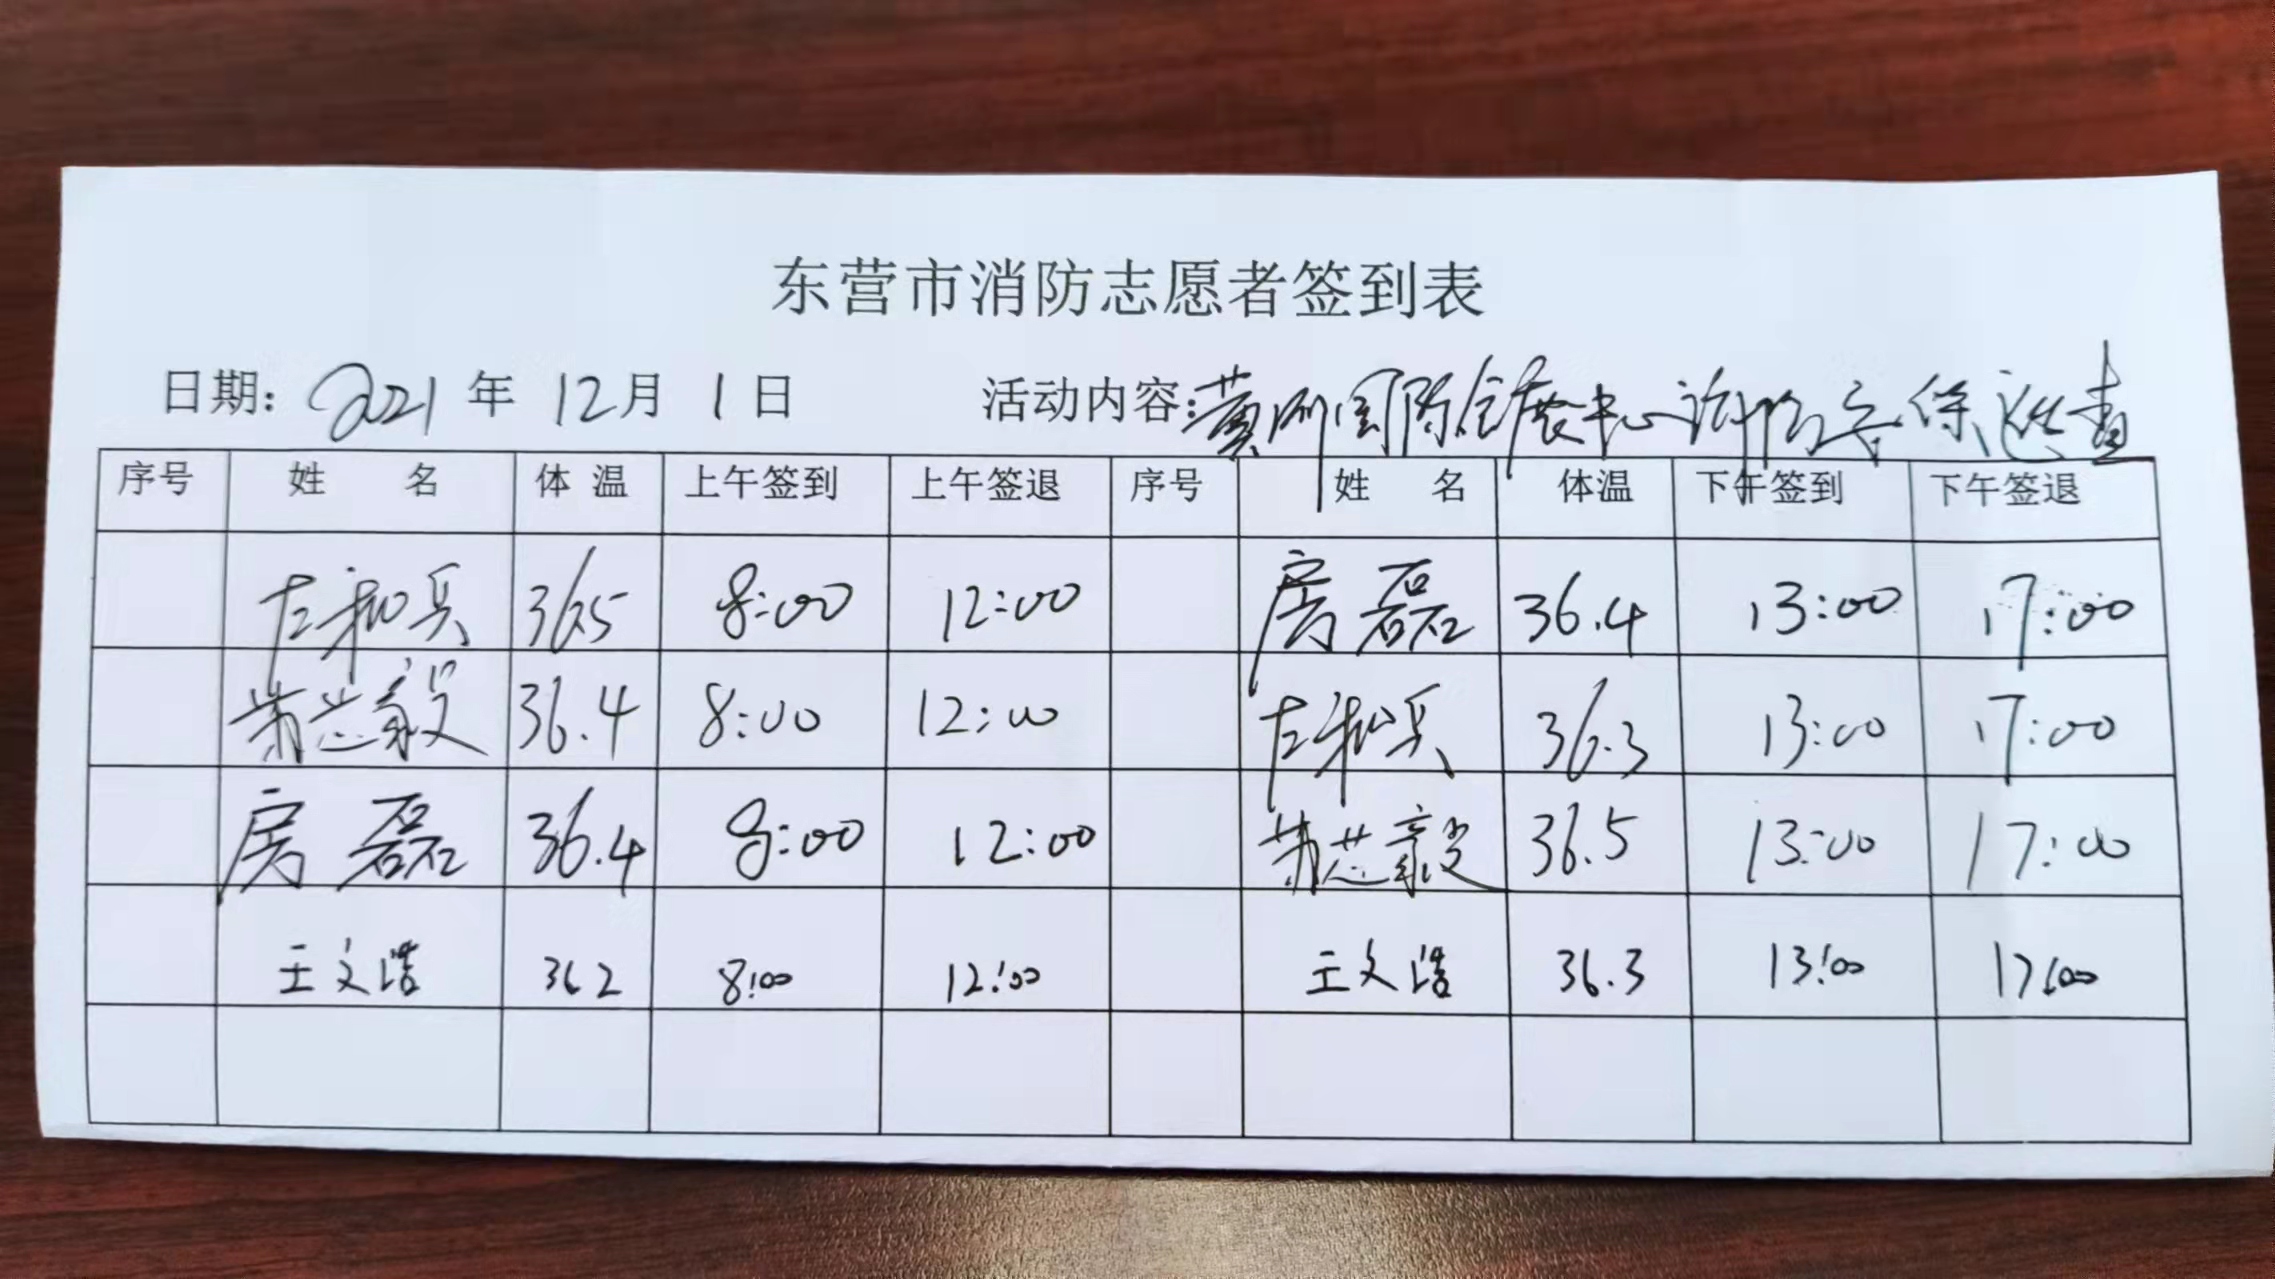 东营市消防志愿者签到表
日期: 2021 年 12 月 1 日 活动内容: 黄河国际会展中心消防安保巡查
序号 姓 名 体 温 上午签到 上午签退 序号 姓 名 体温 下午签到 下午签退
左和兵 36.5 8:00 12:00 房磊 36.4 13:00 17:00
36.4 8:00 12:00 左和兵 36.3 13:00 17:00
房磊 36.4 8:00 12:00 36.5 13:00 17:00
王文浩 36.2 8:00 12:00 王文浩 36.3 13:00 17:00